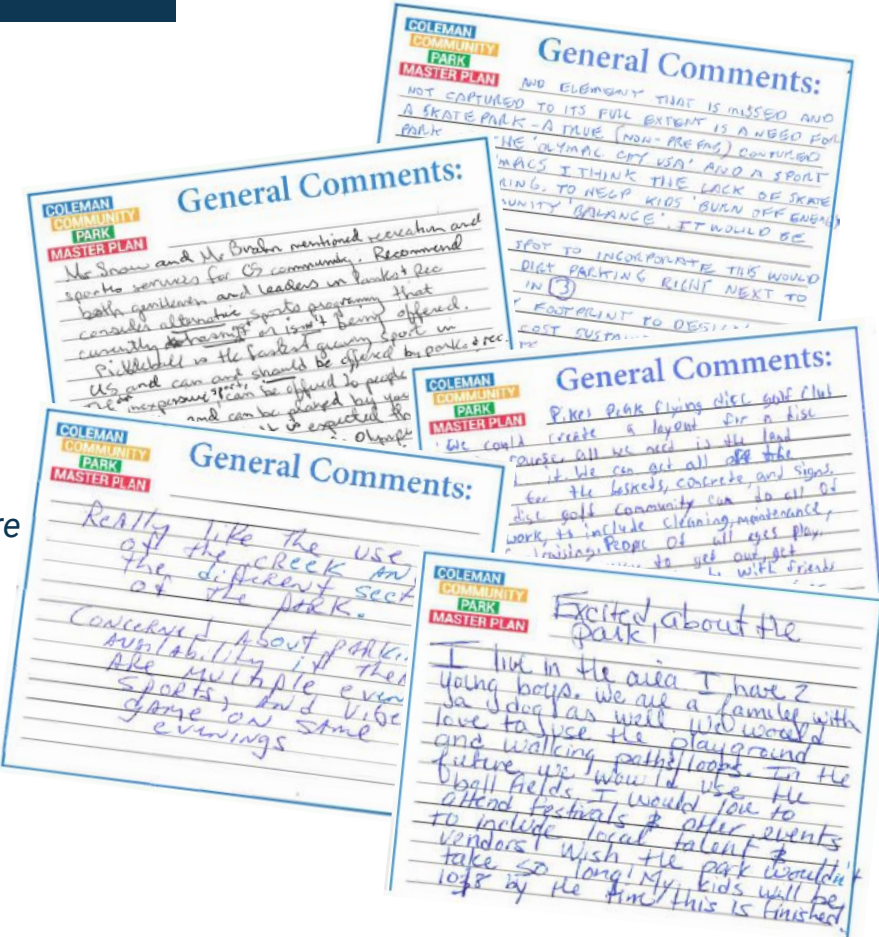 COLEMAN
COMMUNITY
PARK
MASTER PLAN
General Comments:
AND ELEMENT THAT IS MISSED AND
NOT CAPTURED TO ITS FULL EXTENT IS A NEED FOR
A SKATE PARK - A TRUE (NON-PREFAB) CONTURED
PARK
'OLYMPIC CITY USA' AND A SPORT
I THINK THE LACK OF SKATE
TO HELP KIDS 'BURN OFF ENERGY
'BALANCE'. IT WOULD BE
SPOT TO INCORPORATE THIS WOULD
DIRT PARKING RIGHT NEXT TO
IN 3
FOOTPRINT TO
COST
COLEMAN
COMMUNITY
PARK
MASTER PLAN
General Comments:
Mr Snow and Mr mentioned recreation and
sports services for CS community. Recommend
both gentlemen and leaders in Parks & Rec
consider alternative sports programing that
currently or isn't being offered.
Pickleball is the fastest growing sport in
US and can and should be offered by parks & rec.
inexpensive sports, can be offered to people
and can be played by
it is expected
COLEMAN
COMMUNITY
PARK
MASTER PLAN
General Comments:
Pikes Peak Flying disc golf Club
We could create a layout for a disc
course, all we need is the land
it. We can get all of the
for the baskets, concrete, and signs.
disc golf community can do all of
work, to include cleaning, maintenance,
People of all ages play,
to get out, get
with friends
re
COLEMAN
COMMUNITY
PARK
MASTER PLAN
General Comments:
Really like the use
of the creek
the different
of the park.
Concerned about
availability if
are multiple
sports, and
game on same
evenings
COLEMAN
COMMUNITY
PARK
MASTER PLAN
Excited about the
park!
I live in the area I have 2
young boys. we are a family with
a dog as well. We would
love to use the playground
and walking paths/loops. In the
future we would use the
ball fields. I would love to
attend festivals & other events
to include local talent &
vendors I wish the park wouldn't
take so long! My kids will be
by the time this is finished.